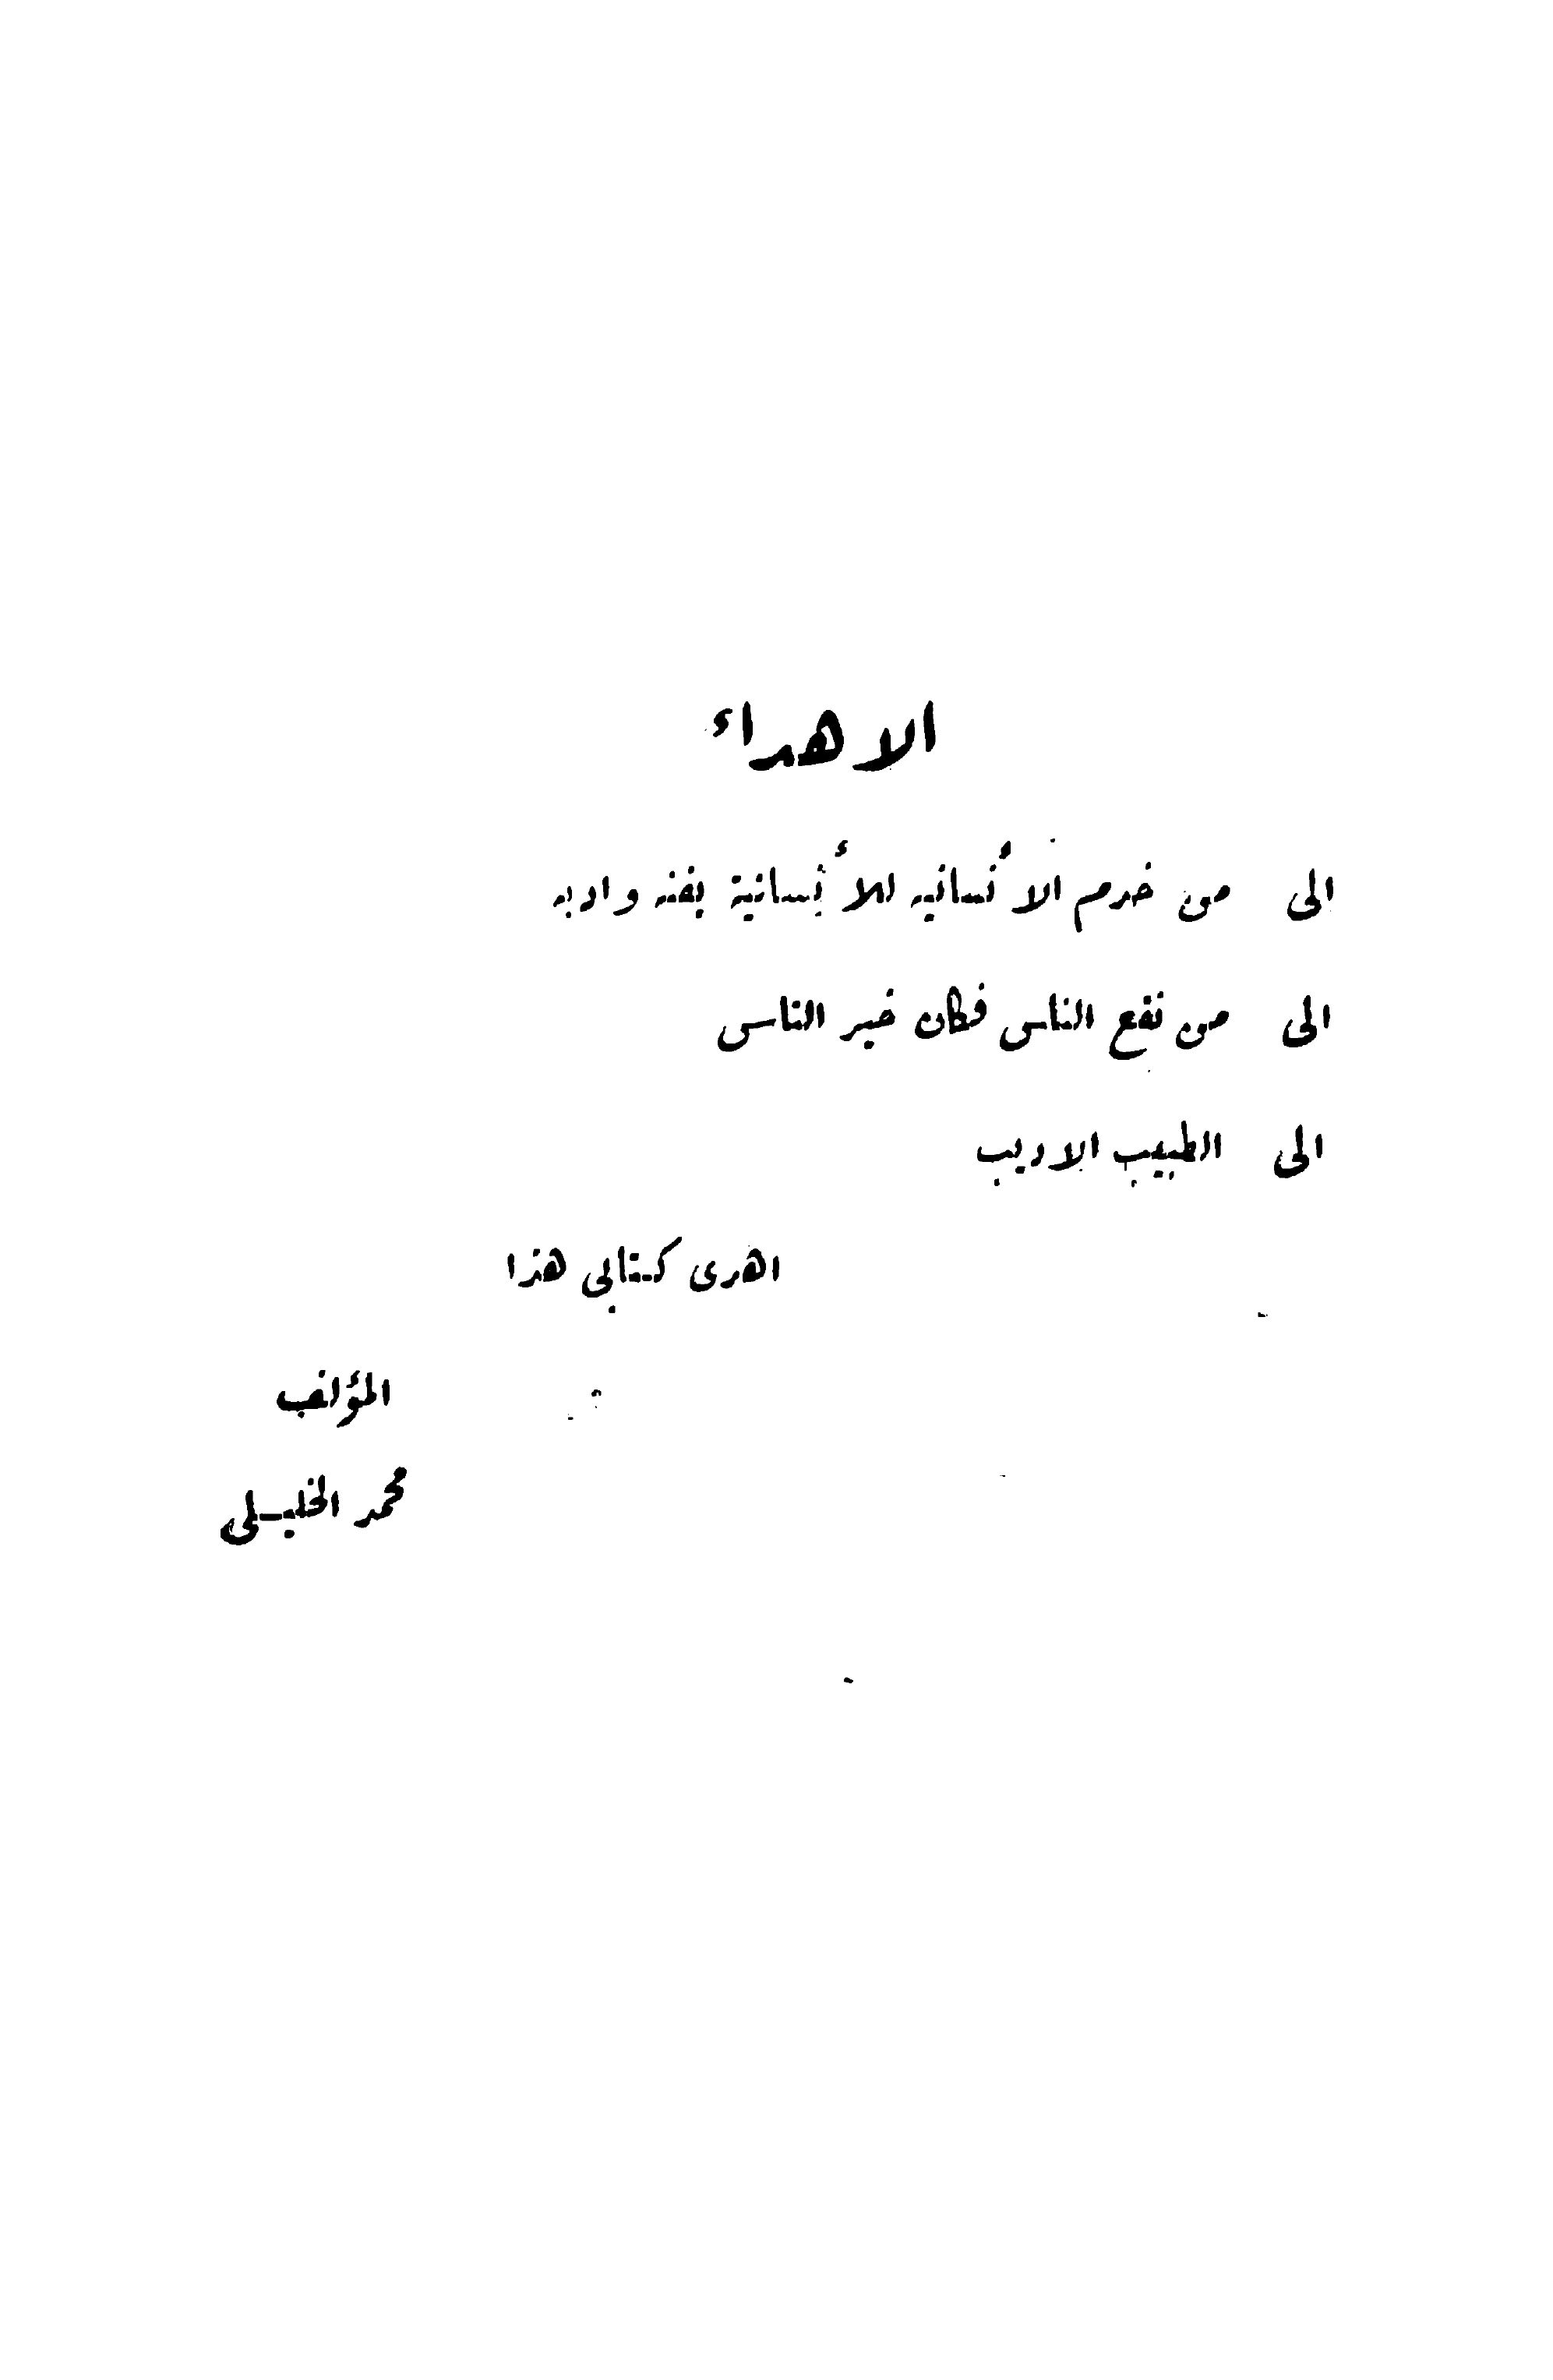 الاهداء
الى من خدم الأنسانيه للأنسانية بفنه وادبه
الى من نفع الناس فكان خير الناس
الى الطبيب الاديب
اهدى كتابي هذا
المؤلف
محمد الخليلى